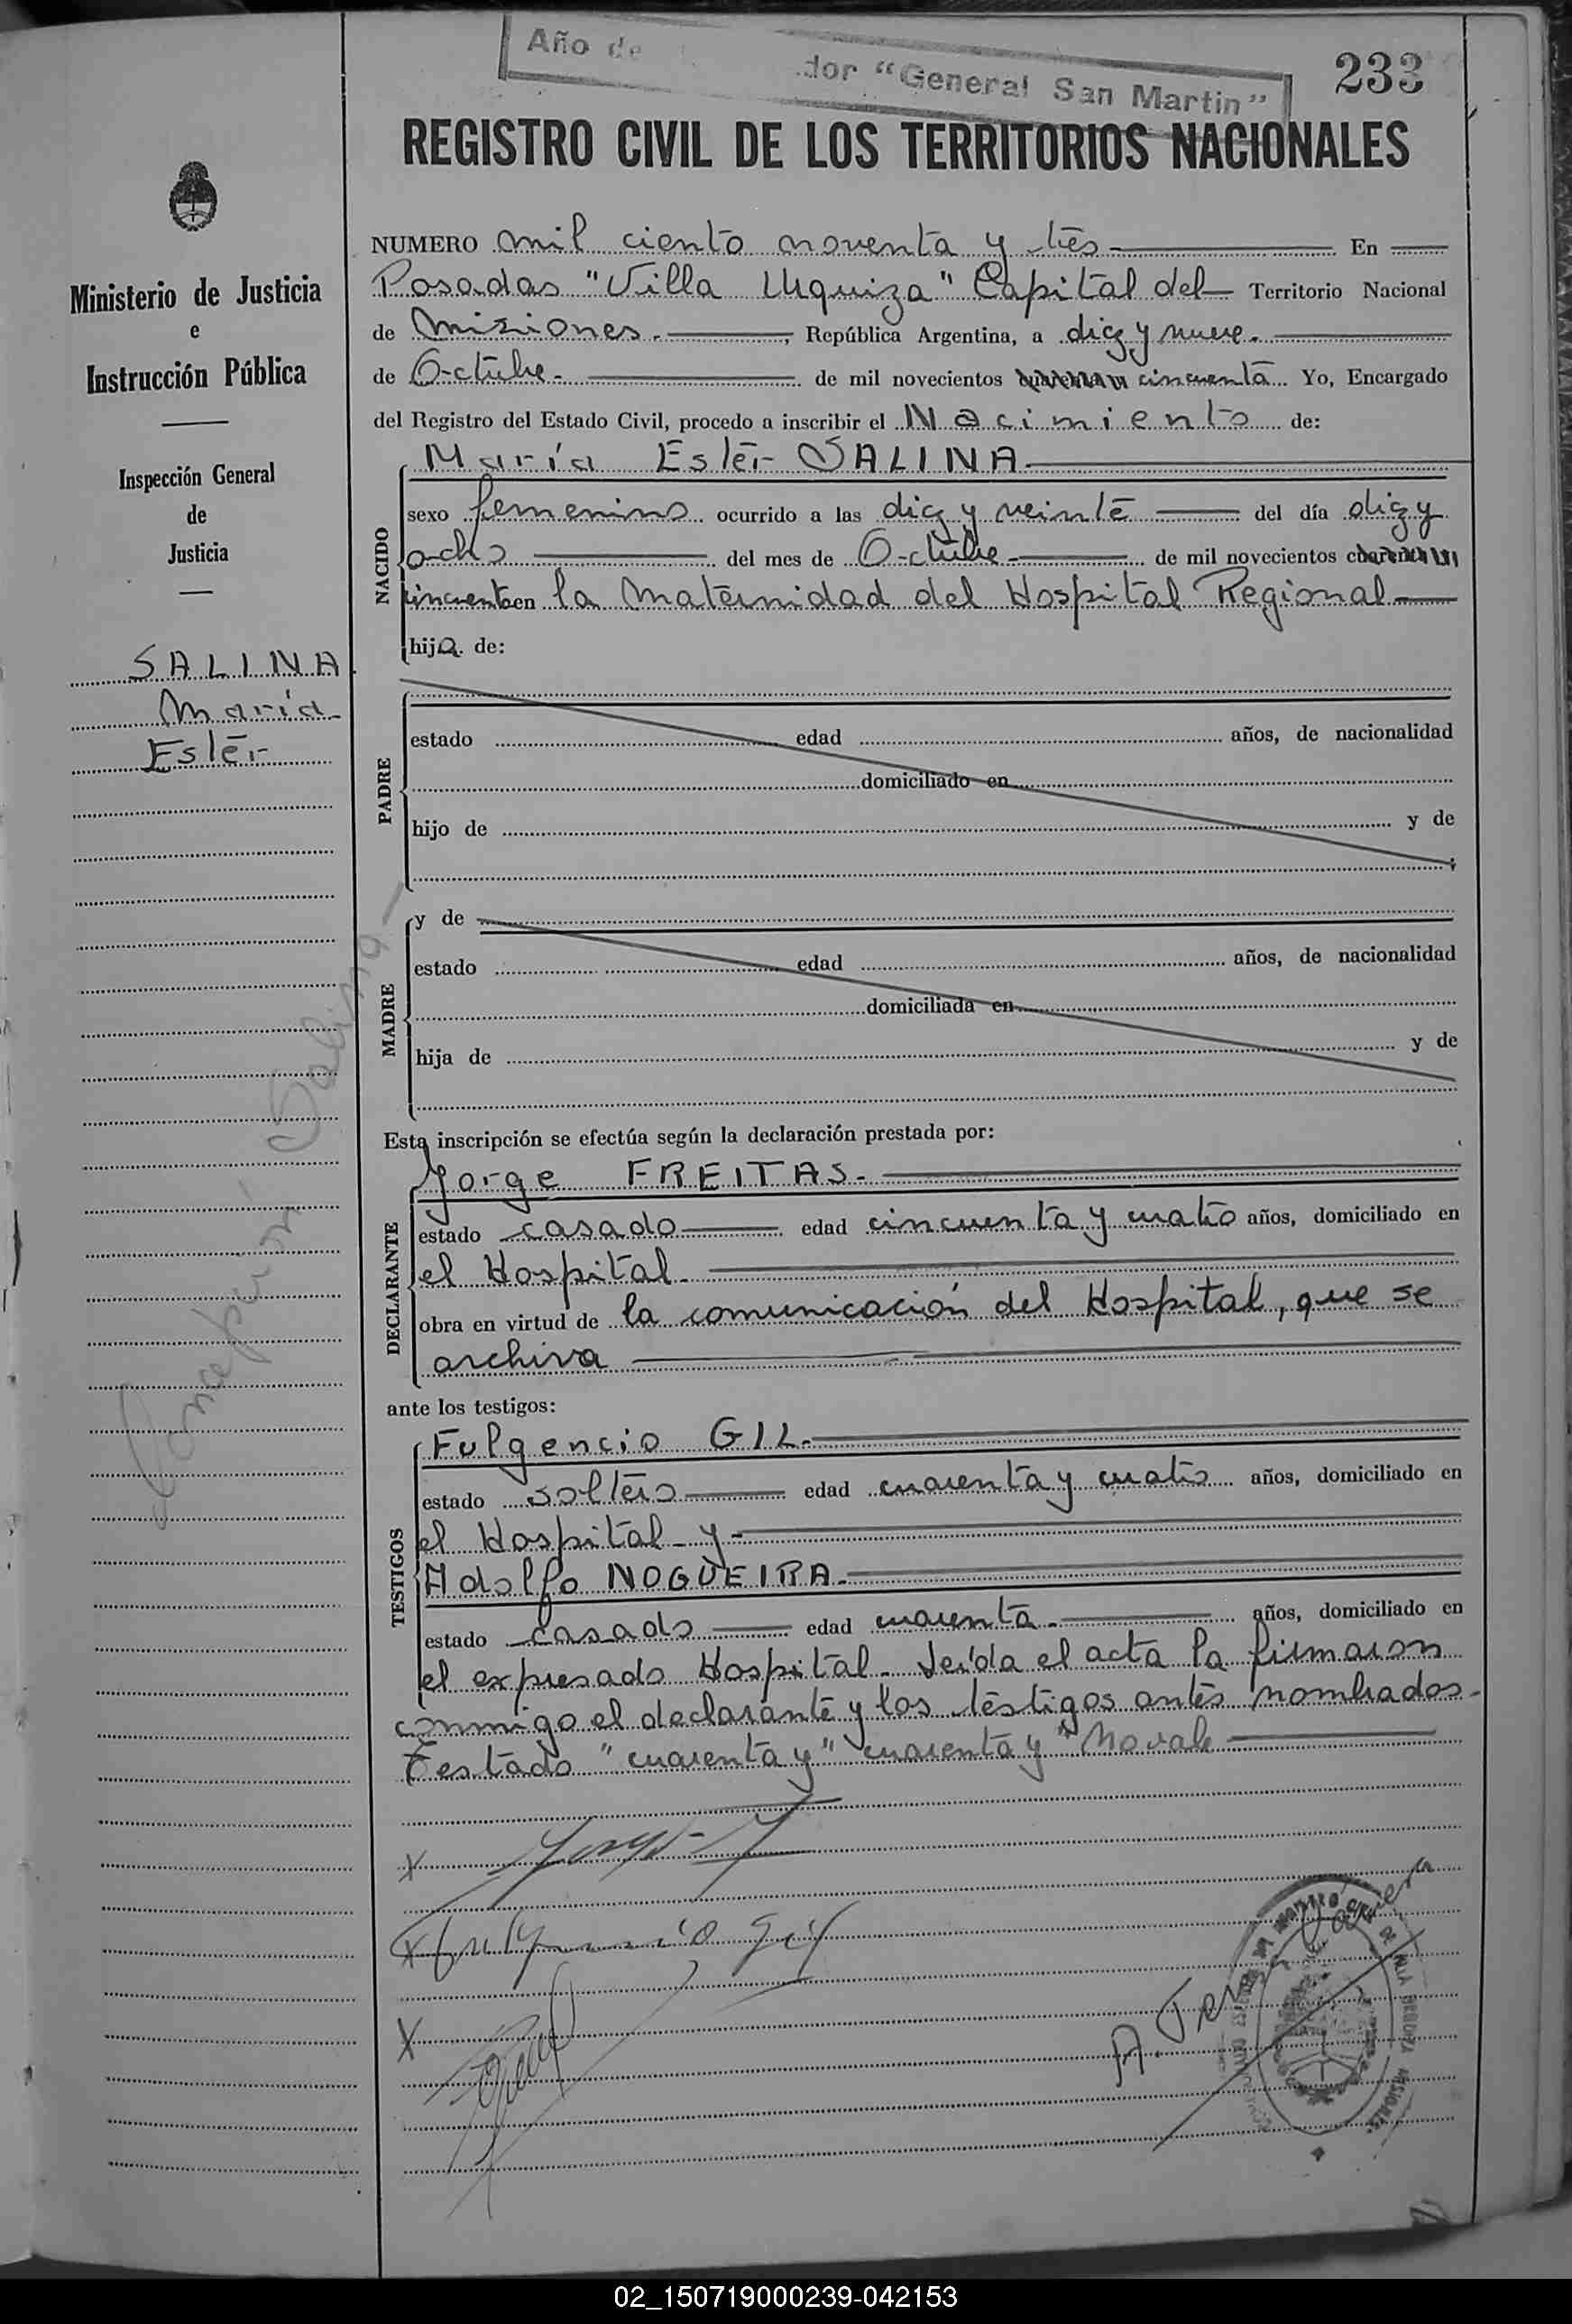 Año de
dor "General San Martin"
233
REGISTRO CIVIL DE LOS TERRITORIOS NACIONALES
Ministerio de Justicia
e
Instrucción Pública
Inspección General
de
Justicia
SALINA
María
Ester
Concepción Salina
NUMERO mil ciento noventa y tres En
Posadas "Villa Urquiza" Capital del Territorio Nacional
de Misiones. , República Argentina, a diez y nueve.
de Octubre. de mil novecientos cuarenta y cincuenta Yo, Encargado
del Registro del Estado Civil, procedo a inscribir el Nacimiento de:
María Ester SALINA
NACIDO
sexo femenino ocurrido a las diez y veinte del día diez y
ocho del mes de Octubre de mil novecientos cuarenta y
cincuenta en la Maternidad del Hospital Regional
hija de:
PADRE
estado edad años, de nacionalidad
domiciliado en
hijo de y de
;
MADRE
y de
estado edad años, de nacionalidad
domiciliada en
hija de y de
Esta inscripción se efectúa según la declaración prestada por:
Jorge FREITAS.
DECLARANTE
estado casado edad cincuenta y cuatro años, domiciliado en
el Hospital.
obra en virtud de la comunicación del Hospital, que se
archiva
ante los testigos:
Fulgencio GIL.
TESTIGOS
estado soltero edad cuarenta y cuatro años, domiciliado en
el Hospital y
Adolfo NOGUEIRA.
estado casado edad cuarenta. años, domiciliado en
el expresado Hospital. Leída el acta la firmaron
conmigo el declarante y los testigos antes nombrados.
Testado "cuarenta y" cuarenta y" No vale
X
X Fulgencio Gil
X
02_150719000239-042153